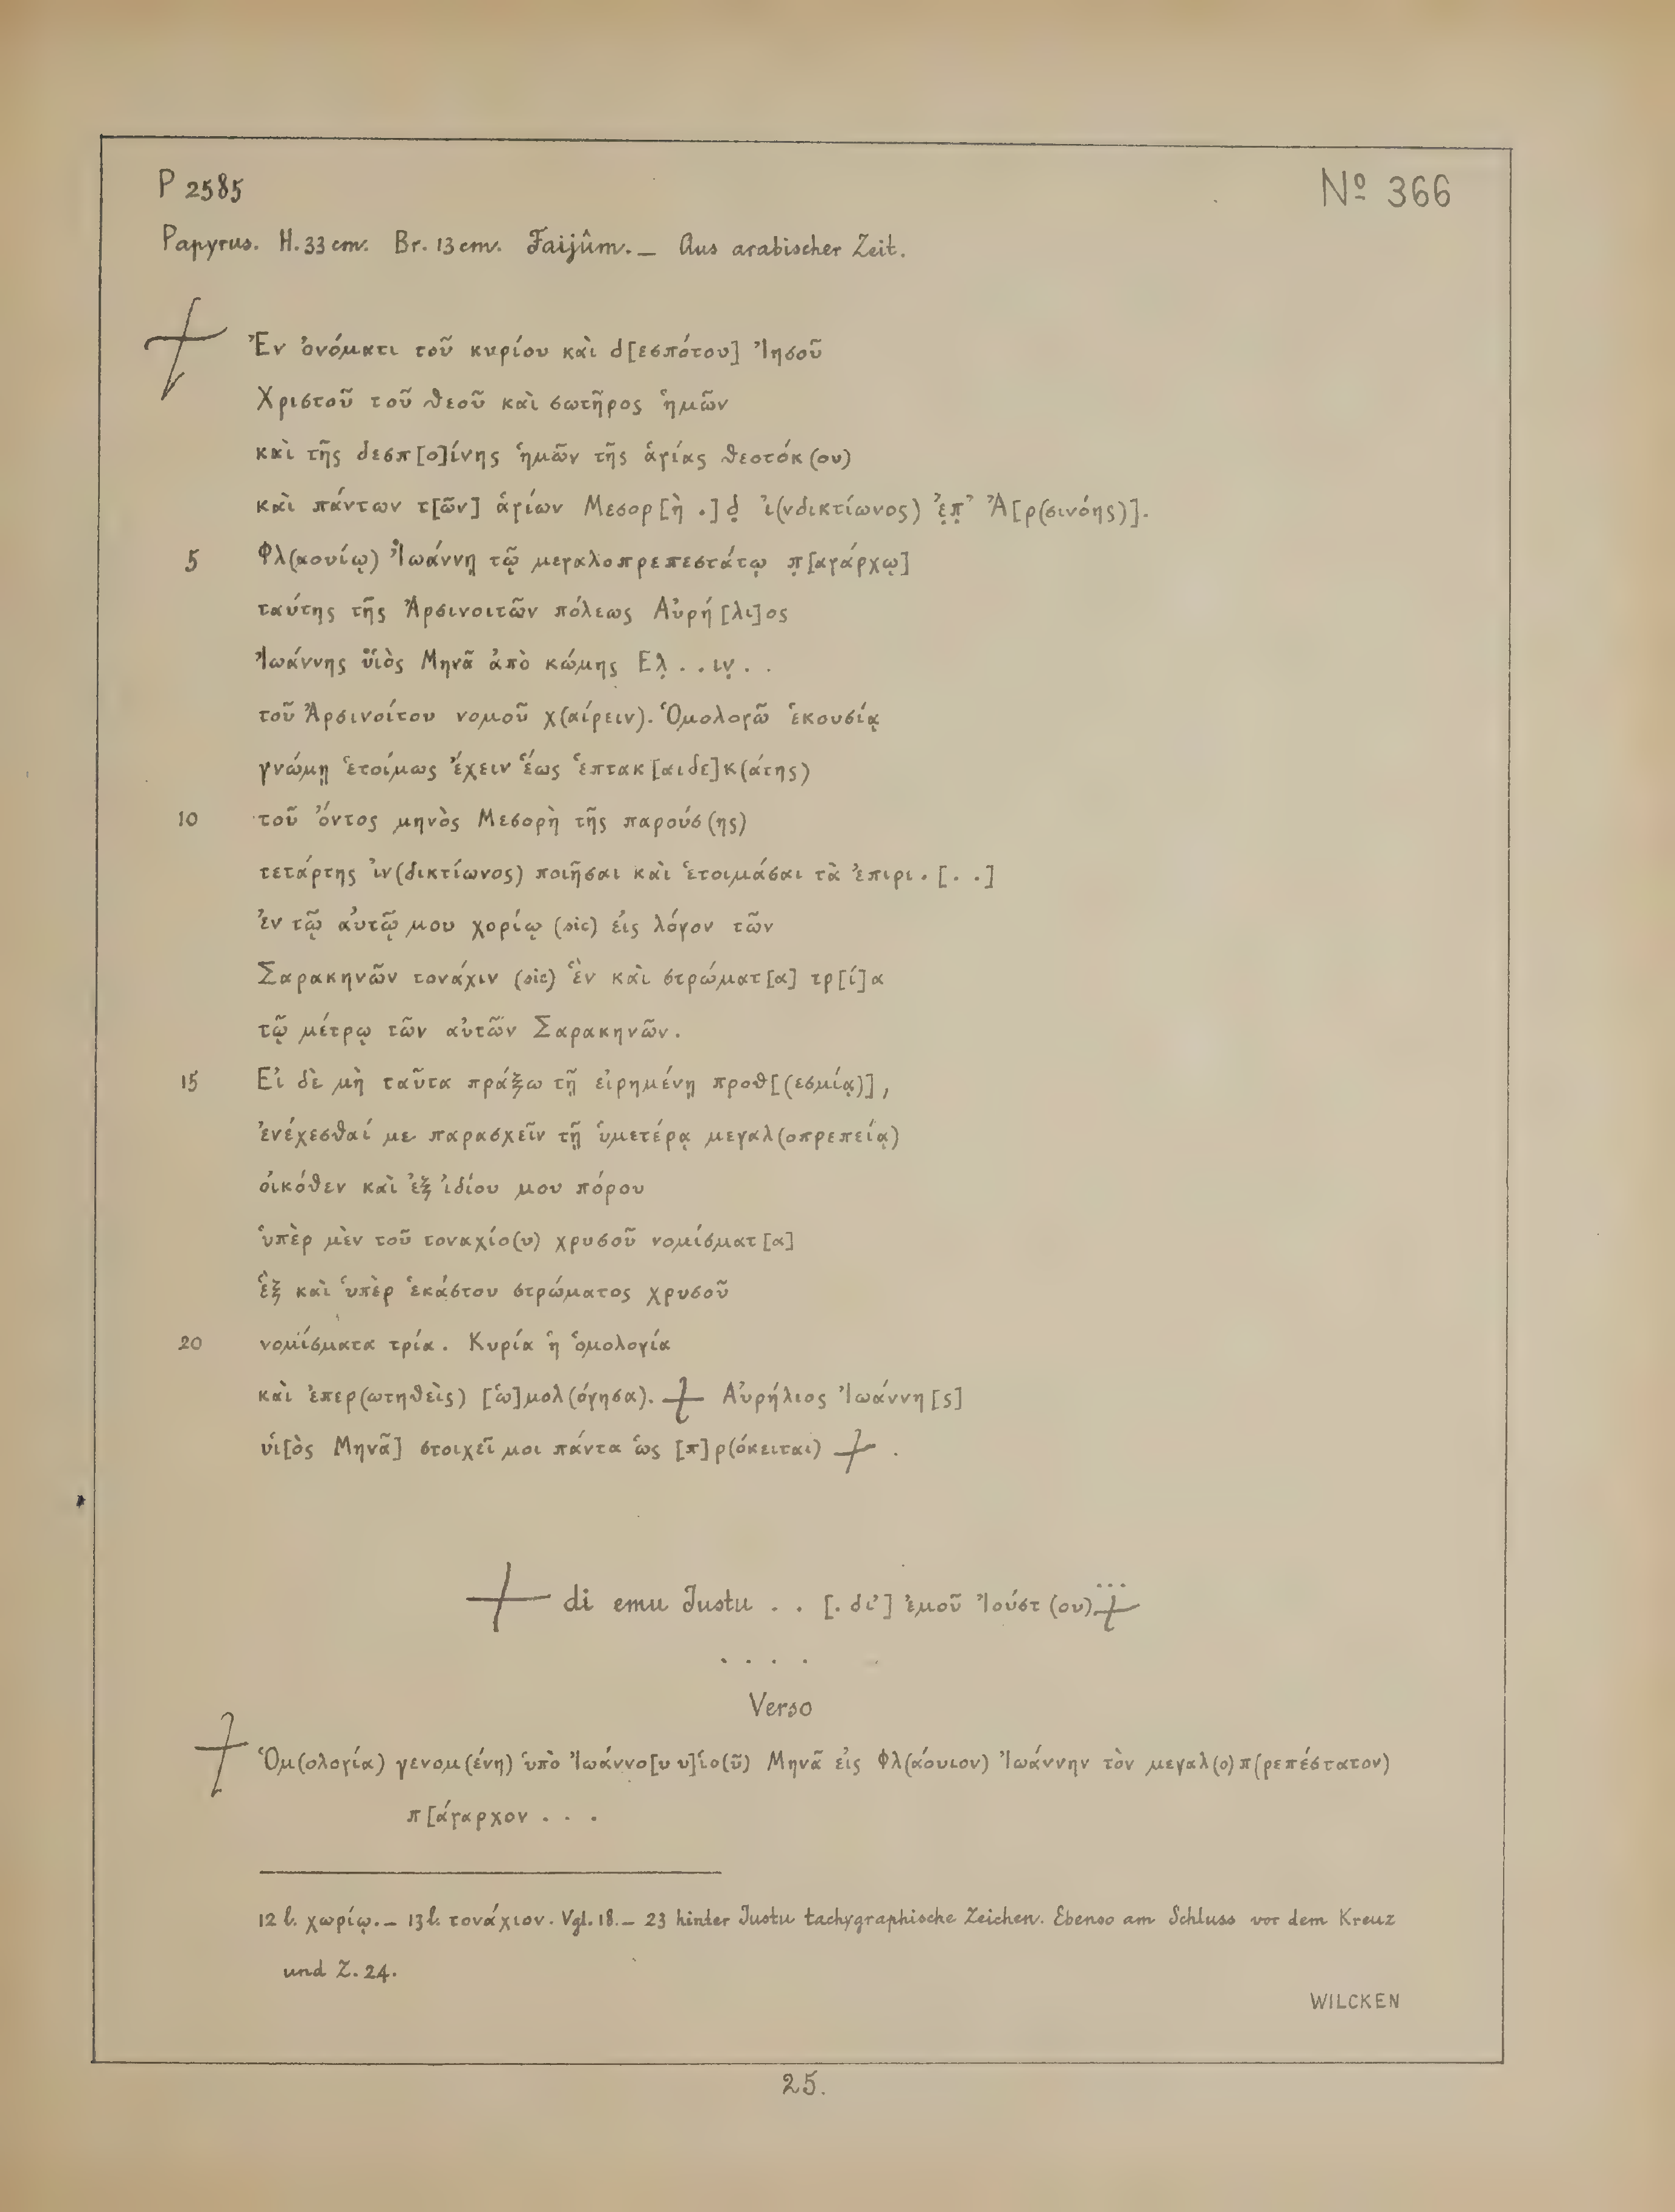 P 2585
Nº 366
Papyrus. H. 33 cm. Br. 13 cm. Faijûm. — Aus arabischer Zeit.
Ἐν ὀνόματι τοῦ κυρίου καὶ δ[εσπότου] Ἰησοῦ
Χριστοῦ τοῦ θεοῦ καὶ σωτῆρος ἡμῶν
καὶ τῆς δεσπ[ο]ίνης ἡμῶν τῆς ἁγίας θεοτόκ(ου)
καὶ πάντων τ[ῶν] ἁγίων Μεσορ[ὴ .] δ̣ ἰ(νδικτίωνος) ἐ̣π̣’ Ἀ[ρ(σινόης)].
5 Φλ(αουίῳ) Ἰωάννῃ τῷ μεγαλοπρεπεστάτῳ π̣[αγάρχῳ]
ταύτης τῆς Ἀρσινοιτῶν πόλεως Αὐρή[λι]ος
Ἰωάννης ϋἱὸς Μηνᾶ ἀπὸ κώμης Ελ̣ . . ιν̣ . .
τοῦ Ἀρσινοίτου νομοῦ χ(αίρειν). Ὁμολογῶ ἑκουσίᾳ
γνώμῃ ἑτοίμως ἔχειν ἕως ἑπτακ[αιδε]κ(άτης)
10 τοῦ ὄντος μηνὸς Μεσορὴ τῆς παρούσ(ης)
τετάρτης ἰν(δικτίωνος) ποιῆσαι καὶ ἑτοιμάσαι τὰ ἐπιρι . [. .]
ἐν τῷ αὐτῷ μου χορίῳ (sic) εἰς λόγον τῶν
Σαρακηνῶν τονάχιν (sic) ἓν καὶ στρώματ[α] τρ[ί]α
τῷ μέτρῳ τῶν αὐτῶν Σαρακηνῶν.
15 Εἰ δὲ μὴ ταῦτα πράξω τῇ εἰρημένῃ προθ[(εσμίᾳ)],
ἐνέχεσθαί με παρασχεῖν τῇ ὑμετέρᾳ μεγαλ(οπρεπείᾳ)
οἰκόθεν καὶ ἐξ ἰδίου μου πόρου
ὑπὲρ μὲν τοῦ τοναχίο(υ) χρυσοῦ νομίσματ[α]
ἓξ καὶ ὑπὲρ ἑκάστου στρώματος χρυσοῦ
20 νομίσματα τρία. Κυρία ἡ ὁμολογία
καὶ ἐπερ(ωτηθεὶς) [ὡ]μολ(όγησα). ┼ Αὐρήλιος Ἰωάννη[ς]
υἱ[ὸς Μηνᾶ] στοιχεῖ μοι πάντα ὡς [π]ρ(όκειται) ┼ .
┼ di emu Justu . . [. δι’] ἐμοῦ Ἰούστ(ου) ... ┼
. . . .
Verso
┼ Ὁμ(ολογία) γενομ(ένη) ὑπὸ Ἰωάννο[υ υ]ἱο(ῦ) Μηνᾶ εἰς Φλ(άουιον) Ἰωάννην τὸν μεγαλ(ο)π(ρεπέστατον)
π[άγαρχον . . .
12 l. χωρίῳ. — 13 l. τονάχιον. Vgl. 18. — 23 hinter Justu tachygraphische Zeichen. Ebenso am Schluss vor dem Kreuz
und Z. 24.
WILCKEN
25.